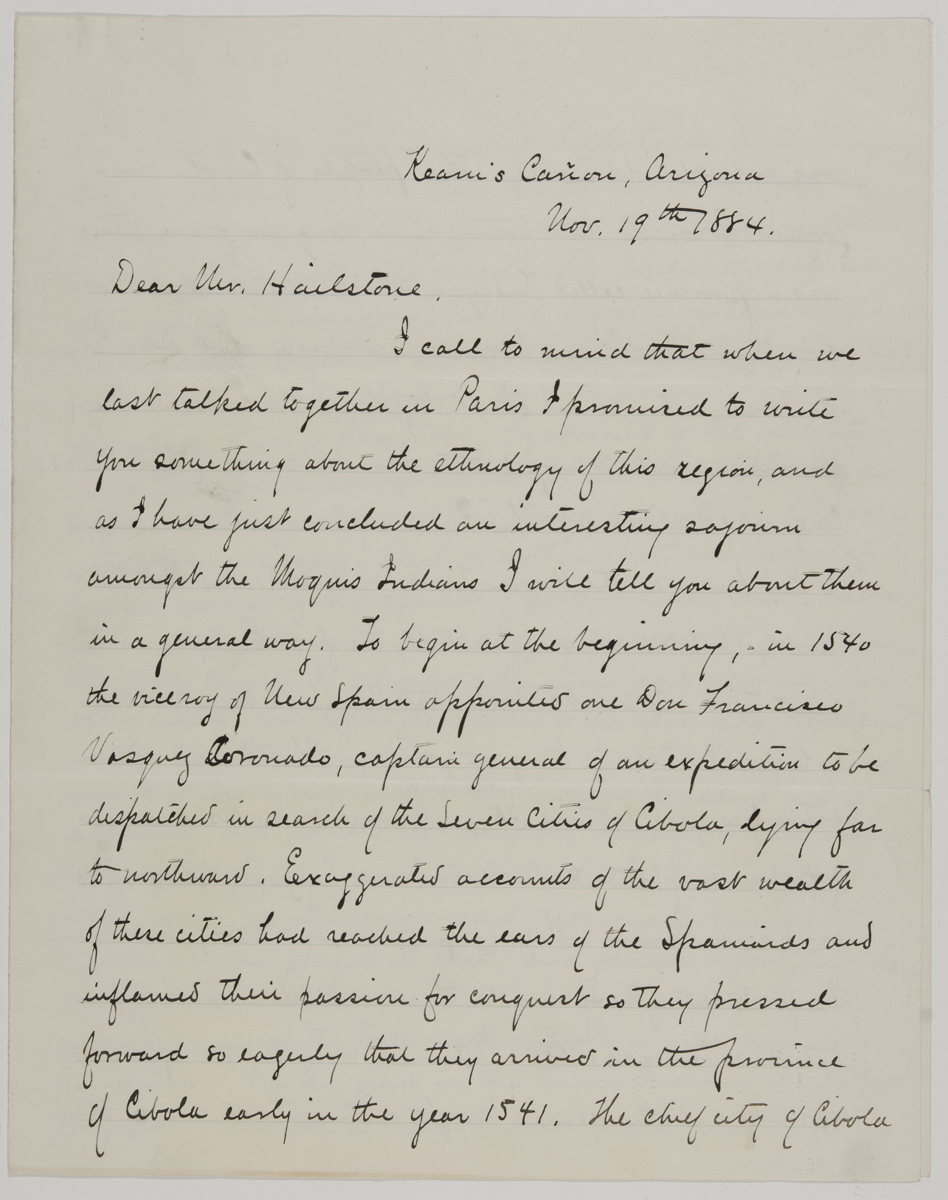 Keam's Cañon, Arizona
Nov. 19th 1884.
Dear Mr. Hailstone.
I call to mind that when we
last talked together in Paris I promised to write
you something about the ethnology of this region, and
as I have just concluded an interesting sojourn
amongst the Moquis Indians I will tell you about them
in a general way. To begin at the beginning, - in 1540
the viceroy of New Spain appointed one Don Francisco
Vasquez Coronado, captain general of an expedition to be
dispatched in search of the Seven Cities of Cibola, lying far
to northward. Exaggerated accounts of the vast wealth
of these cities had reached the ears of the Spaniards and
inflamed their passion for conquest so they pressed
forward so eagerly that they arrived in the province
of Cibola early in the year 1541. The chief city of Cibola